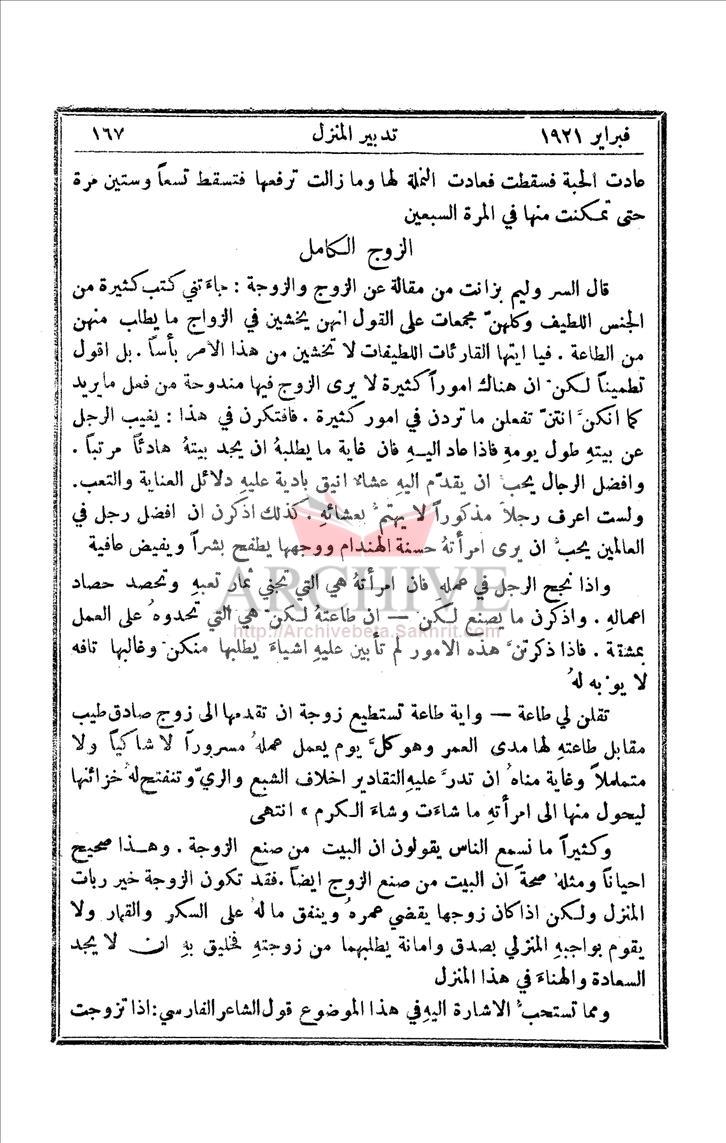 فبراير ١٩٢١ تدبير المنزل ١٦٧
عادت الحبة فسقطت فعادت النملة لها وما زالت ترفعها فتسقط تسعاً وستين مرة
حتى تمكنت منها في المرة السبعين
الزوج الكامل
قال السر وليم بزانت من مقالة عن الزوج والزوجة : جاءتني كتب كثيرة من
الجنس اللطيف وكلهنّ مجمعات على القول انهن يخشين في الزواج ما يطلب منهن
من الطاعة . فيا ايتها القارئات اللطيفات لا تخشين من هذا الأمر بأساً . بل اقول
تطميناً لكنّ ان هناك اموراً كثيرة لا يرى الزوج فيها مندوحة من فعل ما يريد
كما انكنَّ انتنّ تفعلن ما تردن في امور كثيرة . فافتكرن في هذا : يغيب الرجل
عن بيتهِ طول يومهِ فاذا عاد اليـه فان غاية ما يطلبهُ ان يجد بيتهُ هادئاً مرتباً .
وافضل الرجال يحبُّ ان يقدّم اليهِ عشاء انيق بادية عليهِ دلائل العناية والتعب .
ولست اعرف رجلاً مذكوراً لا يهتمُّ بعشائهِ . كذلك اذكرن ان افضل رجل في
العالمين يحبُّ ان يرى امرأتهُ حسنة الهندام ووجهها يطفح بشراً ويفيض عافية
واذا نجح الرجل في عملهِ فان امرأتهُ هي التي تجني ثمار تعبهِ وتحصد حصاد
اعمالهِ . واذكرن ما يصنع لكنّ — ان طاعتهُ لكنّ هي التي تحدوهُ على العمل
ARCHIVE
http://Archivebeta.Sakhrit.com
بمشقة . فاذا ذكرتنَّ هذه الامور لم تأبين عليهِ اشياءَ يطلبها منكنّ وغالبها تافه
لا يؤبه لهُ
تقلن لي طاعة — واية طاعة تستطيع زوجة ان تقدمها الى زوج صادق طيب
مقابل طاعتهِ لها مدى العمر وهو كلَّ يوم يعمل عملهُ مسروراً لا شاكياً ولا
متململاً وغاية مناهُ ان تدرَّ عليهِ التقادير اخلاف الشبع والريّ وتنفتح لهُ خزائنها
ليحول منها الى امرأتهِ ما شاءَت وشاءَ الكرم » انتهى
وكثيراً ما نسمع الناس يقولون ان البيت من صنع الزوجة . وهـذا صحيح
احياناً ومثلهُ صحةً ان البيت من صنع الزوج ايضاً . فقد تكون الزوجة خير ربات
المنزل ولكن اذا كان زوجها يقضي عمرهُ وينفق مالهُ على السكر والقمار ولا
يقوم بواجبهِ المنزلي بصدق وامانة يطلبهما من زوجتهِ فخليق بهِ ان لا يجد
السعادة والهناءَ في هذا المنزل
ومما تستحبُّ الاشارة اليهِ في هذا الموضوع قول الشاعر الفارسي : اذا تزوجت